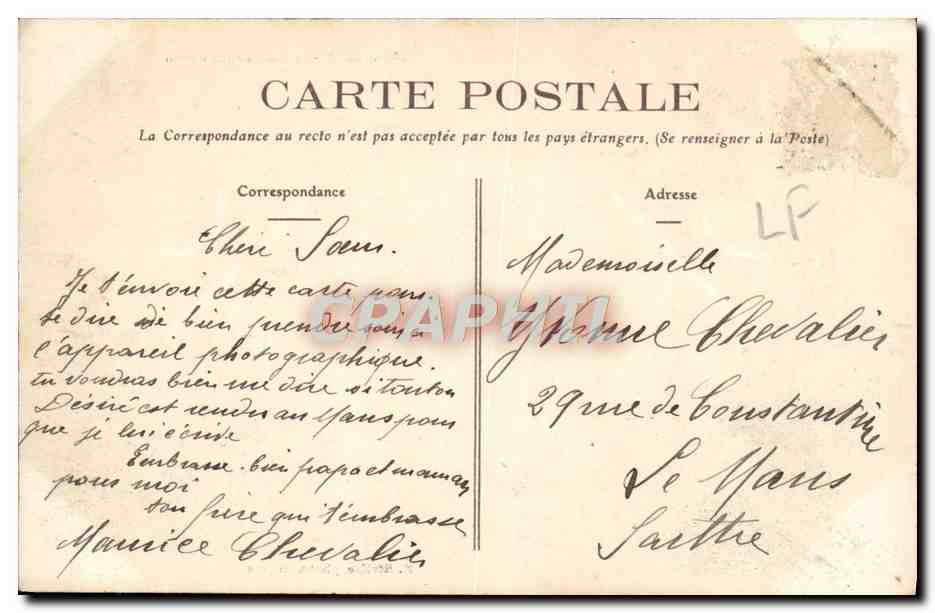 CARTE POSTALE
La Correspondance au recto n'est pas acceptée par tous les pays étrangers. (Se renseigner à la Poste)
Correspondance
Chéri Sœur.
Je t'envoie cette carte pour
te dire de bien prendre soin a
l'appareil photographique.
tu voudras bien me dire si tonton
Désiré est rendu au Mans pour
que je lui écrive
Embrasse bien papa et maman
pour moi
ton frère qui t'embrasse
Maurice Chevalier
Adresse
LF
Mademoiselle
Yvonne Chevalier
29 rue de Constantine
Le Mans
Sarthe
CPAPHIL